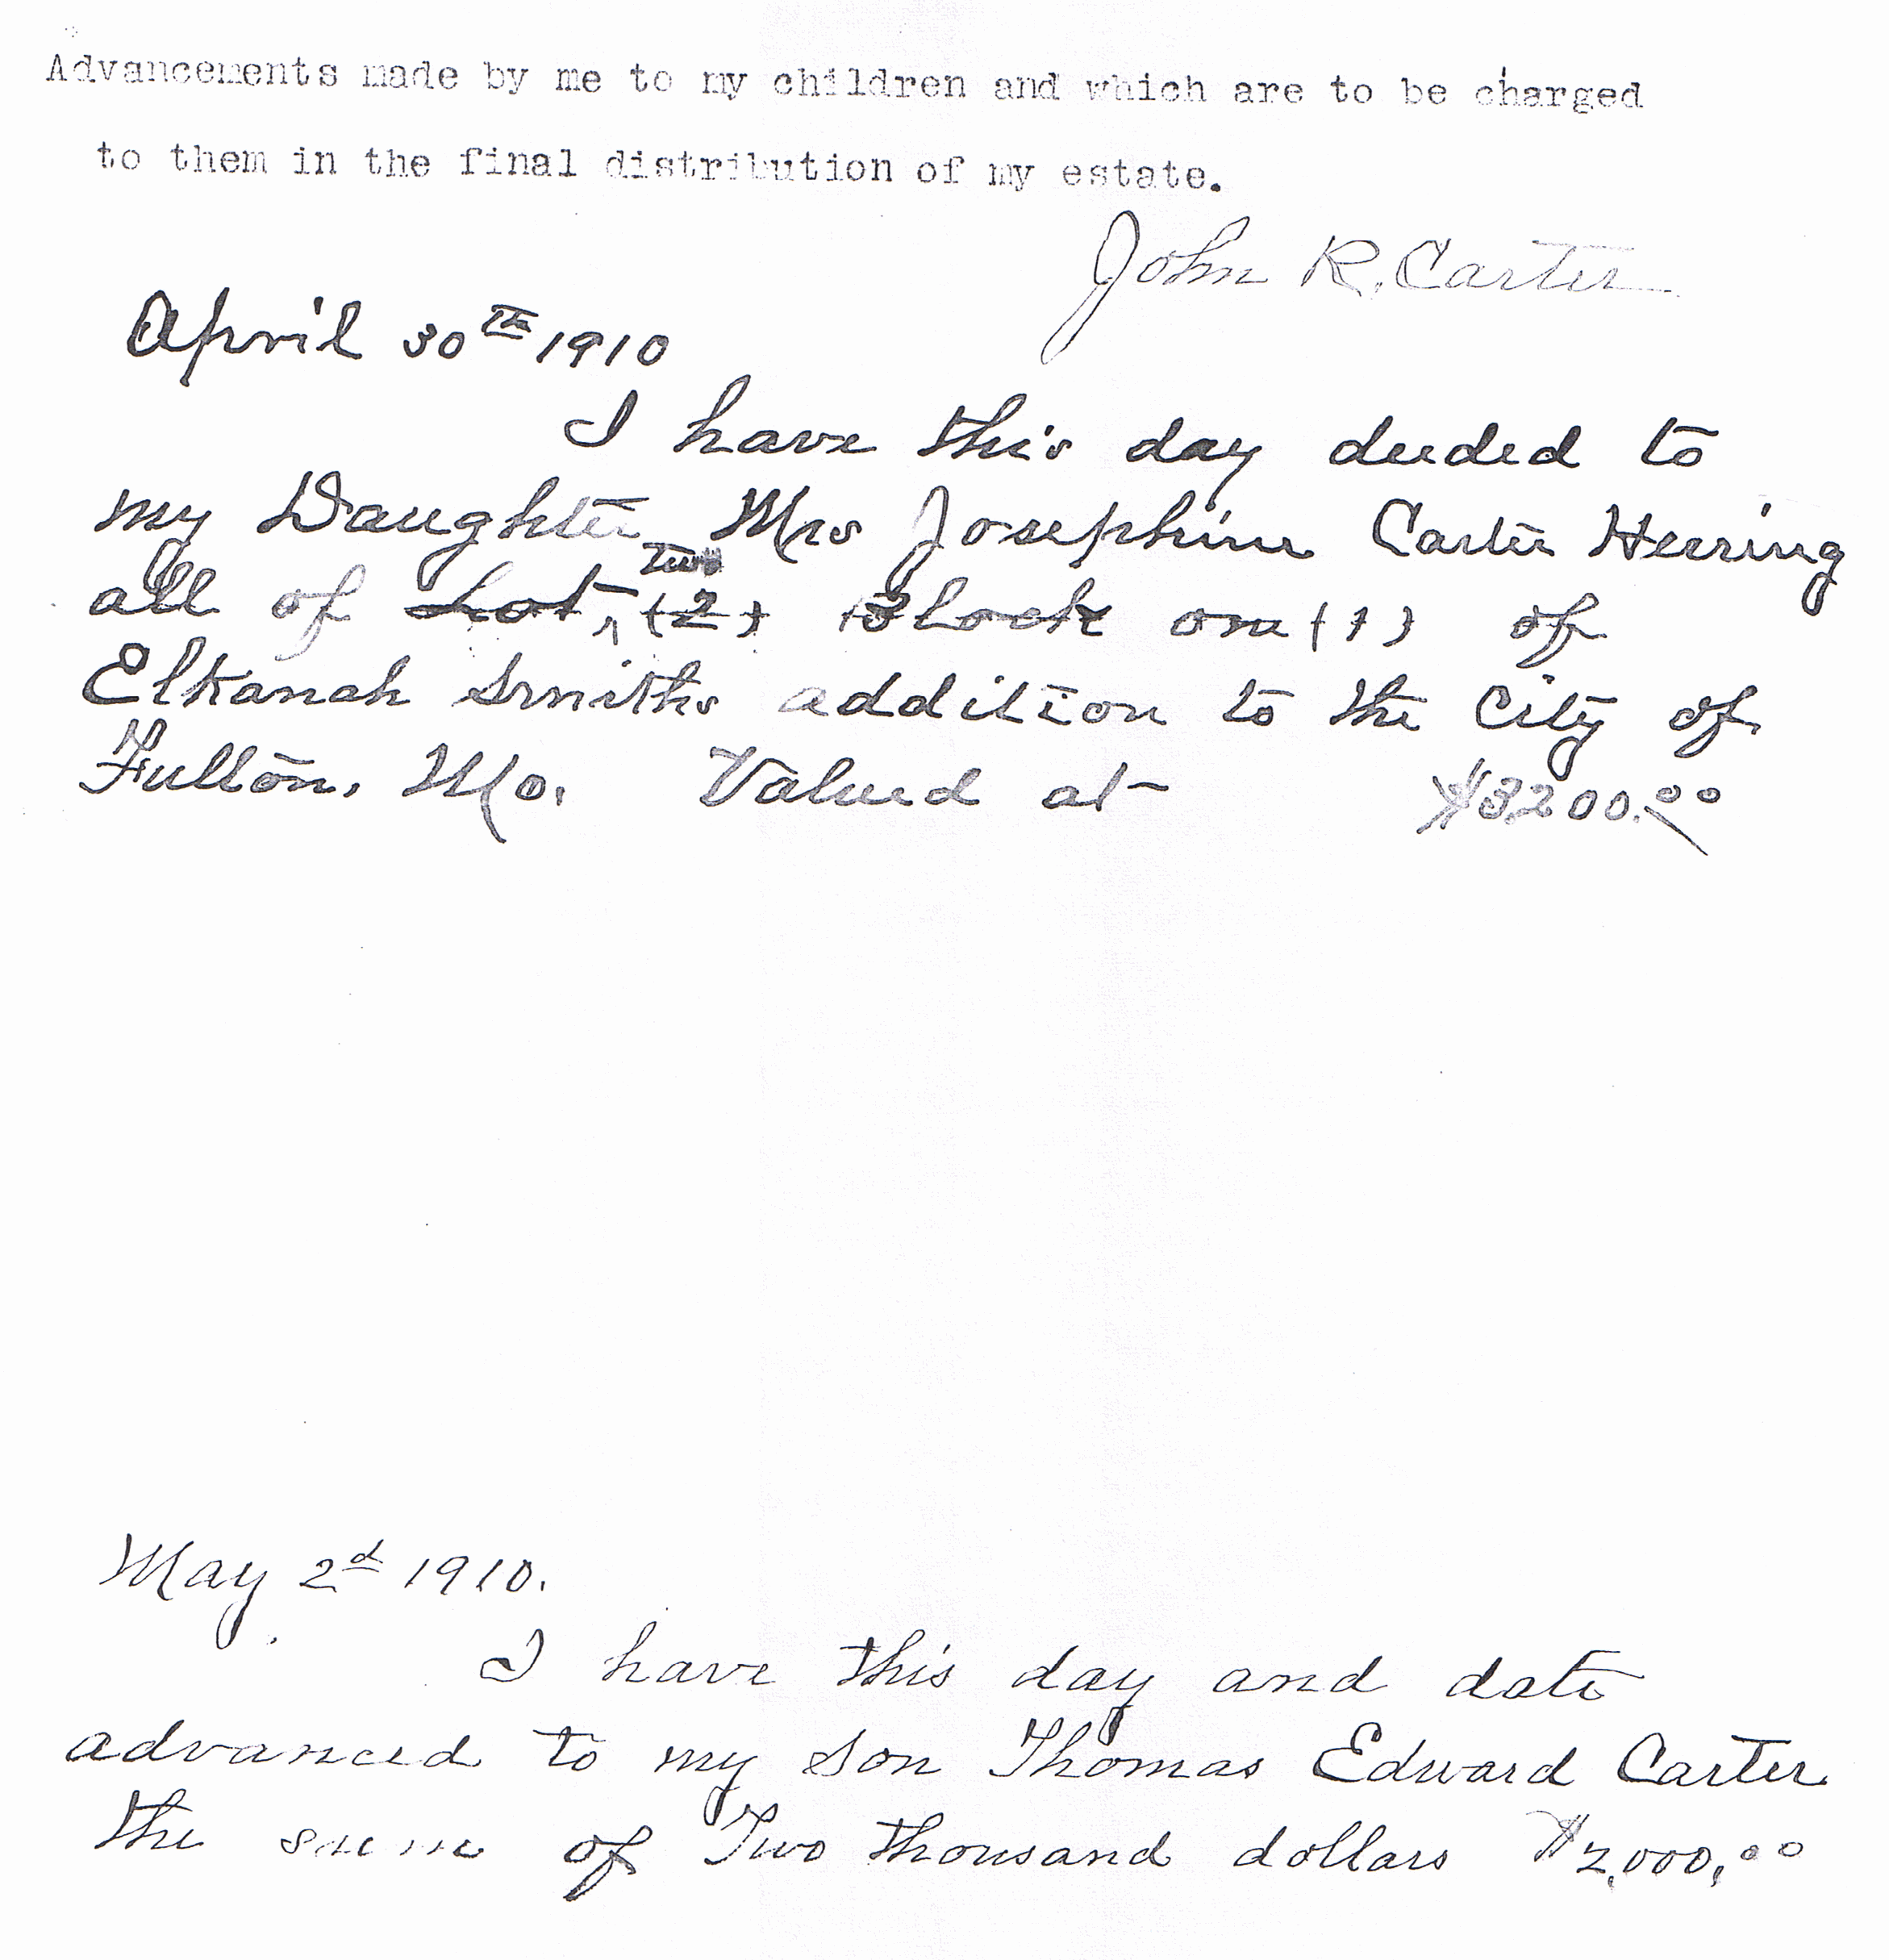 Advancements made by me to my children and which are to be charged
to them in the final distribution of my estate.
John R. Carter
April 30th 1910
I have this day deeded to
my Daughter Mrs Josephine Carter Herring
all of Lot, Two (2) Block one (1) of
Elkanah Smiths addition to the City of
Fulton, Mo. Valued at $3200.00
May 2d 1910.
I have this day and date
advanced to my son Thomas Edward Carter
the sum of Two thousand dollars $2,000,00